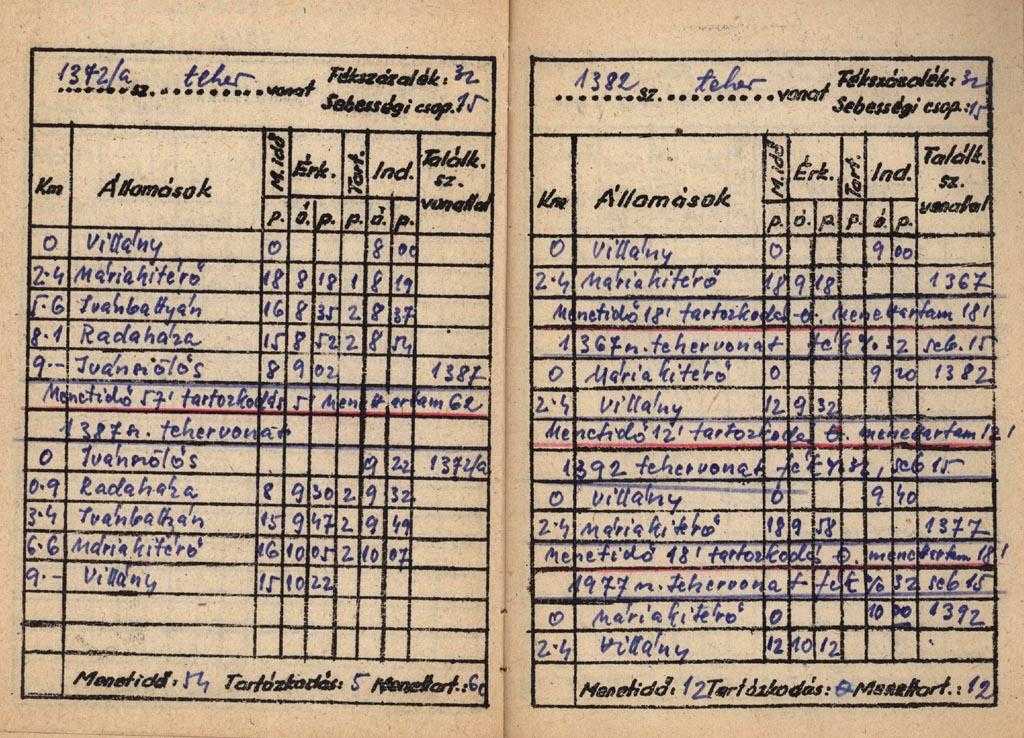 1372/a sz. teher vonat Fékszázalék: 32
Sebességi csop. 15
Km Állomások M.idő Érk. Tart. Ind. Találk. sz. vonattal
p. ó. p. p. ó. p.
0 Villány 0 8 00
2·4 Máriakitérő 18 8 18 1 8 19
5·6 Ivánbattyán 16 8 35 2 8 37
8·1 Radaháza 15 8 52 2 8 54
9·- Ivánszőlős 8 9 02 1387
Menetidő 57' tartozkodás 5' menettartam 62
1387 n. tehervonat
0 Ivánszőlős 9 22 1372/a
0·9 Radaháza 8 9 30 2 9 32
3·4 Ivánbattyán 15 9 47 2 9 49
6·6 Máriakitérő 16 10 05 2 10 07
9·- Villány 15 10 22
Menetidő: 54 Tartózkodás: 5 Menettart.: 60
1382 sz. teher vonat Fékszázalék: 32
Sebességi csop.: 15
Km Állomások M.idő Érk. Tart. Ind. Találk. sz. vonattal
p. ó. p. p. ó. p.
0 Villány 0 9 00
2·4 Máriakitérő 18 9 18 1367
Menetidő 18' tartozkodás 0. menettartam 18'
1367 n. tehervonat fék % 32 seb. 15
0 Máriakitérő 0 9 20 1382
2·4 Villány 12 9 32
Menetidő 12' tartozkodá 0. menettartam 12'
1392 tehervonat fék % 32, seb 15
0 Villány 0 9 40
2·4 Máriakitérő 18 9 58 1377
Menetidő 18' tartozkodás 0. menettartam 18'
1977 n. tehervonat fék % 32 seb 15
0 Máriakitérő 0 10 00 1392
2·4 Villány 12 10 12
Menetidő: 12 Tartózkodás: 0 Menettart.: 12